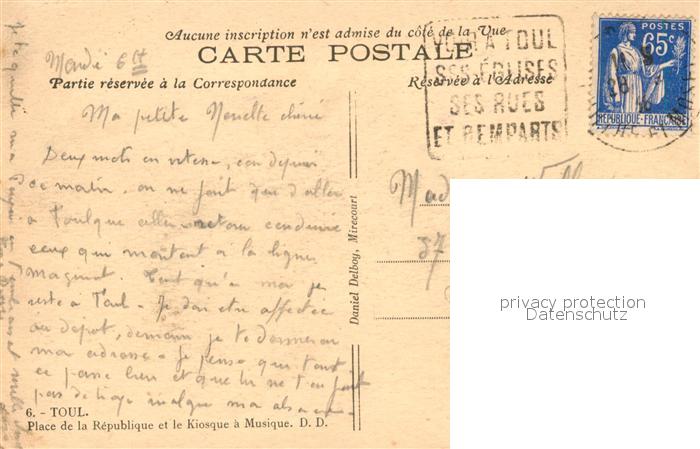 Aucune inscription n'est admise du côté de la Vue
CARTE POSTALE
Partie réservée à la Correspondance
Réservée à l'Adresse
TOUL
SES ÉGLISES
SES RUES
ET REMPARTS
POSTES
65c
REPUBLIQUE-FRANÇAISE
Mardi 6
Ma petite chérie
Deux mots en vitesse, car depuis
ce matin, on ne fait que d'aller
à Toul que aller retour conduire
ceux qui montent à la ligne
maginot. Tant qu'à moi je
reste à Toul - Je dois être affecté
au dépot, demain je te donnerai
mon adresse - je pense que tout
ce passe bien et que tu ne t'en fait
pas de trop malgré mon absence
je te quitte ma
Mad
37
Daniel Delboy, Mirecourt
6. - TOUL.
Place de la République et le Kiosque à Musique. D. D.
privacy protection
Datenschutz